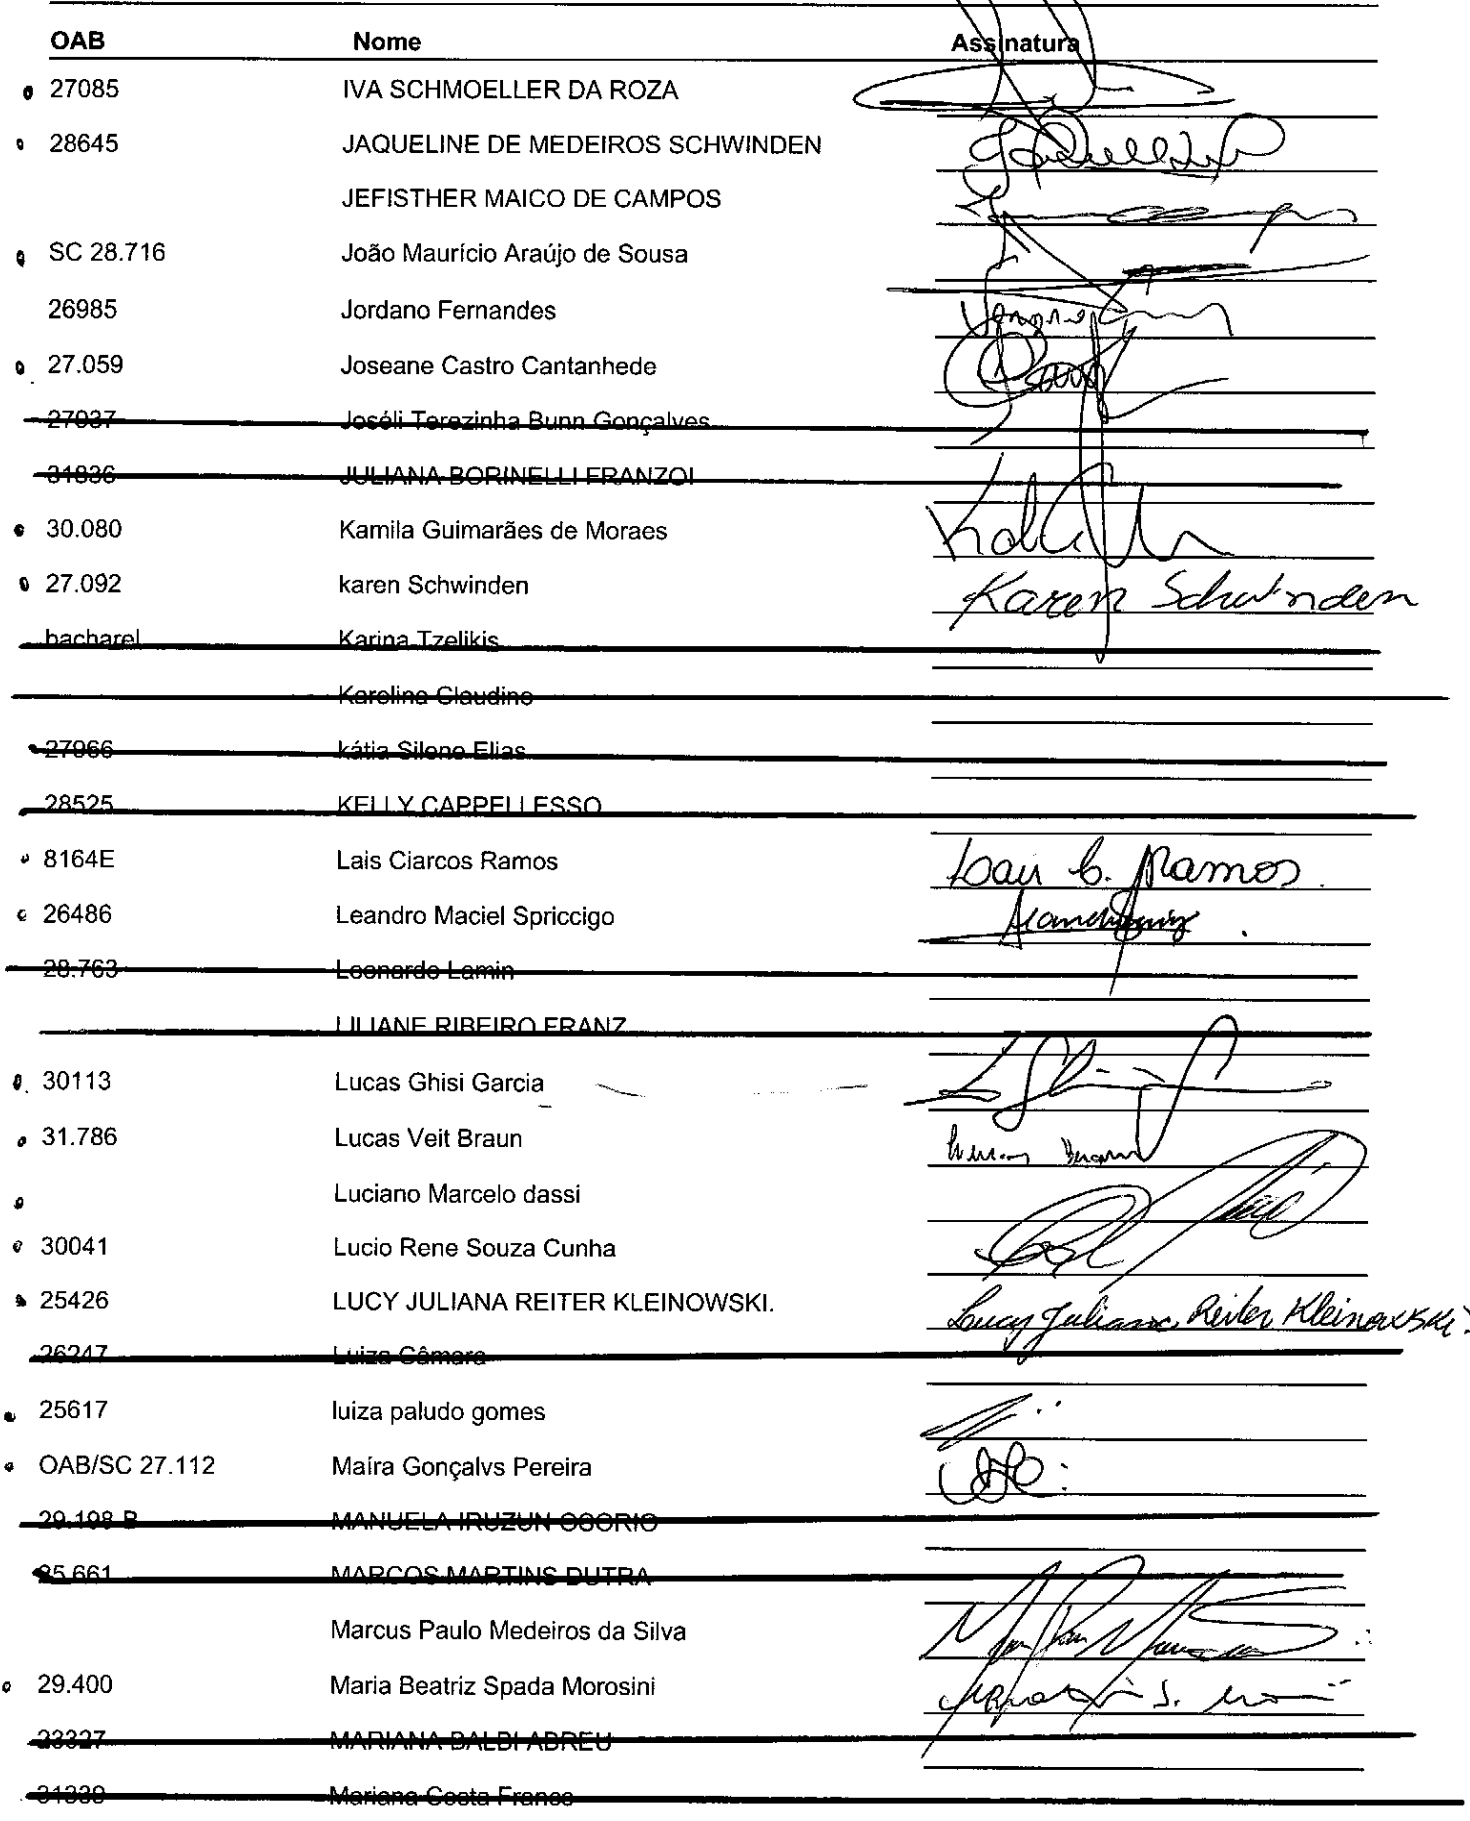 OAB Nome Assinatura
27085 IVA SCHMOELLER DA ROZA
28645 JAQUELINE DE MEDEIROS SCHWINDEN
JEFISTHER MAICO DE CAMPOS
SC 28.716 João Maurício Araújo de Sousa
26985 Jordano Fernandes
27.059 Joseane Castro Cantanhede
27037 Joséli Terezinha Bunn Gonçalves
31836 JULIANA BORINELLI FRANZOI
30.080 Kamila Guimarães de Moraes
27.092 karen Schwinden Karen Schwinden
bacharel Karina Tzelikis
Karoline Claudino
27966 kátia Silene Elias
28525 KELLY CAPPELLESSO
8164E Lais Ciarcos Ramos Lais C. Ramos
26486 Leandro Maciel Spriccigo
28.763 Leonardo Lamin
LILIANE RIBEIRO FRANZ
30113 Lucas Ghisi Garcia
31.786 Lucas Veit Braun
Luciano Marcelo dassi
30041 Lucio Rene Souza Cunha
25426 LUCY JULIANA REITER KLEINOWSKI. Lucy Juliana Reiter Kleinowski.
26247 Luiza Câmara
25617 luiza paludo gomes
OAB/SC 27.112 Maíra Gonçalvs Pereira
29.198-B MANUELA IRUZUN OSORIO
25.661 MARCOS MARTINS DUTRA
Marcus Paulo Medeiros da Silva
29.400 Maria Beatriz Spada Morosini
23327 MARIANA BALBI ABREU
31339 Mariana Costa Franco